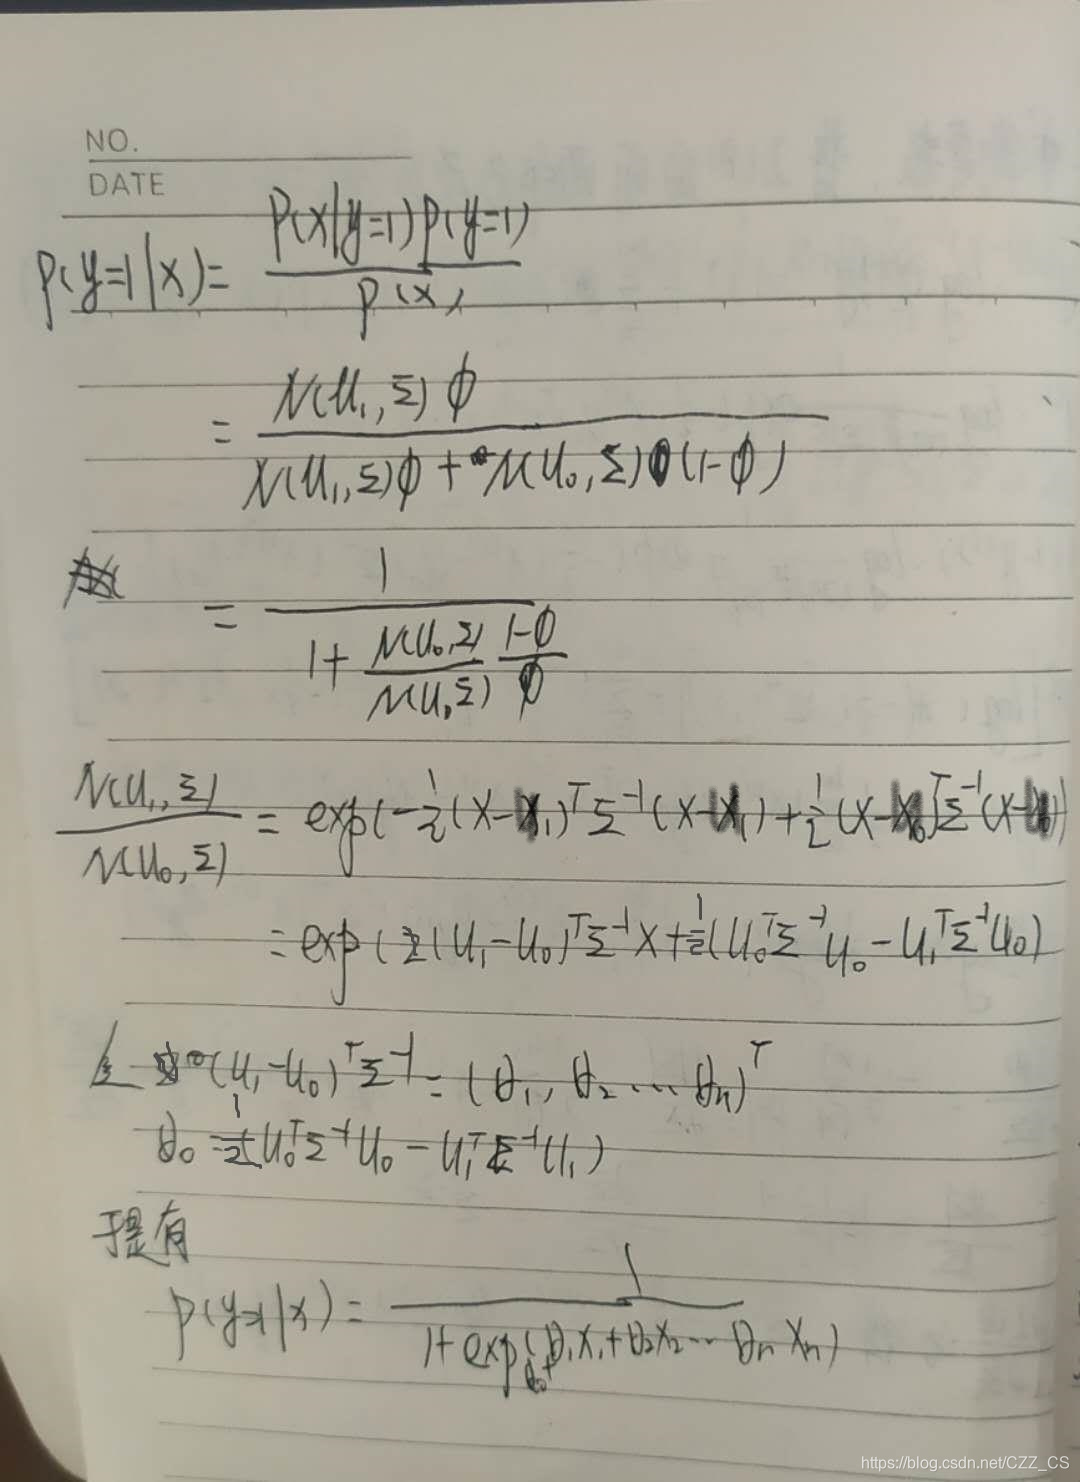 NO.
DATE
P(y=1|x) = \frac{P(x|y=1)P(y=1)}{P(x)}
= \frac{N(u_1,Σ)φ}{N(u_1,Σ)φ + N(u_0,Σ)(1-φ)}
= \frac{1}{1+\frac{N(u_0,Σ)}{N(u_1,Σ)}\frac{1-φ}{φ}}
\frac{N(u_1,Σ)}{N(u_0,Σ)} = exp(-\frac{1}{2}(x-u_1)^TΣ^{-1}(x-u_1)+\frac{1}{2}(x-u_0)^TΣ^{-1}(x-u_0))
= exp((u_1-u_0)^TΣ^{-1}x+\frac{1}{2}(u_0^TΣ^{-1}u_0-u_1^TΣ^{-1}u_0)
(u_1-u_0)^TΣ^{-1} = (θ_1, θ_2 ... θ_n)^T
θ_0 = \frac{1}{2}(u_0^TΣ^{-1}u_0-u_1^TΣ^{-1}u_1)
于是有
P(y=1|x) = \frac{1}{1+exp(θ_0+θ_1x_1+θ_2x_2...θ_nx_n)}
https://blog.csdn.net/CZZ_CS